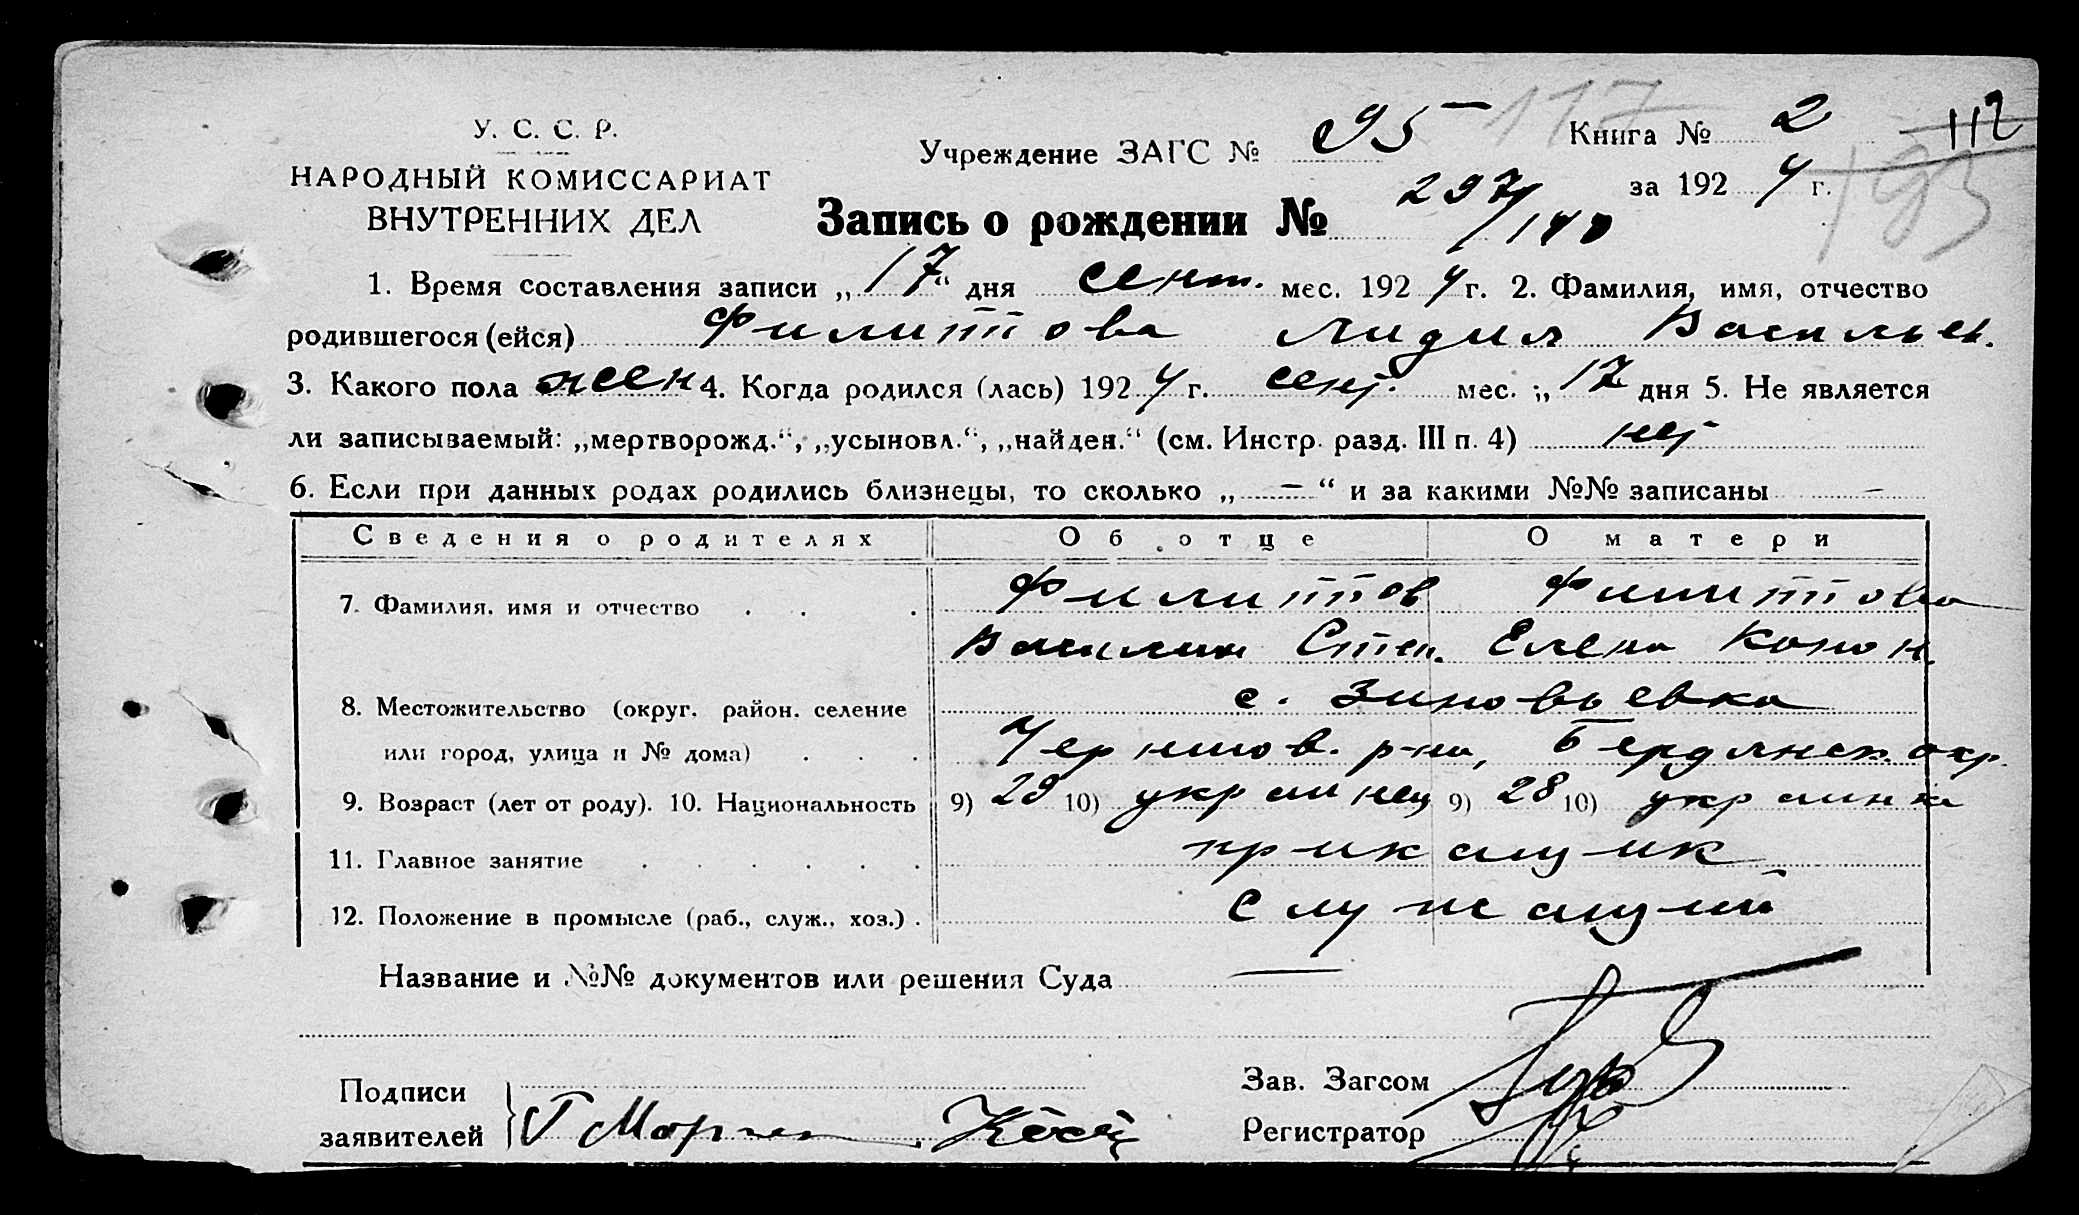 У. С. С. Р.
НАРОДНЫЙ КОМИССАРИАТ
ВНУТРЕННИХ ДЕЛ
Учреждение ЗАГС № 95 117 Книга № 2 112
за 1924 г. 193
Запись о рождении № 297/140
1. Время составления записи „17“ дня сент. мес. 1924 г. 2. Фамилия, имя, отчество
родившегося (ейся) Филиппова Лидия Васильев.
3. Какого пола жен 4. Когда родился (лась) 1924 г. сент. мес. „17 дня 5. Не является
ли записываемый: „мертворожд.“, „усыновл.“, „найден.“ (см. Инстр. разд. III п. 4) нет
6. Если при данных родах родились близнецы, то сколько „ — “ и за какими №№ записаны —
Сведения о родителях Об отце О матери
7. Фамилия, имя и отчество Филиппов Филиппова
Василий Степ. Елена Конон.
8. Местожительство (округ, район, селение с. Зиновьевка
или город, улица и № дома) Черниговв. р-на, Бердянск. окр.
9. Возраст (лет от роду). 10. Национальность 9) 29 10) украинец 9) 28 10) украинка
11. Главное занятие приказчик
12. Положение в промысле (раб., служ., хоз.) служащий
Название и №№ документов или решения Суда —
Подписи
заявителей
Зав. Загсом
Регистратор